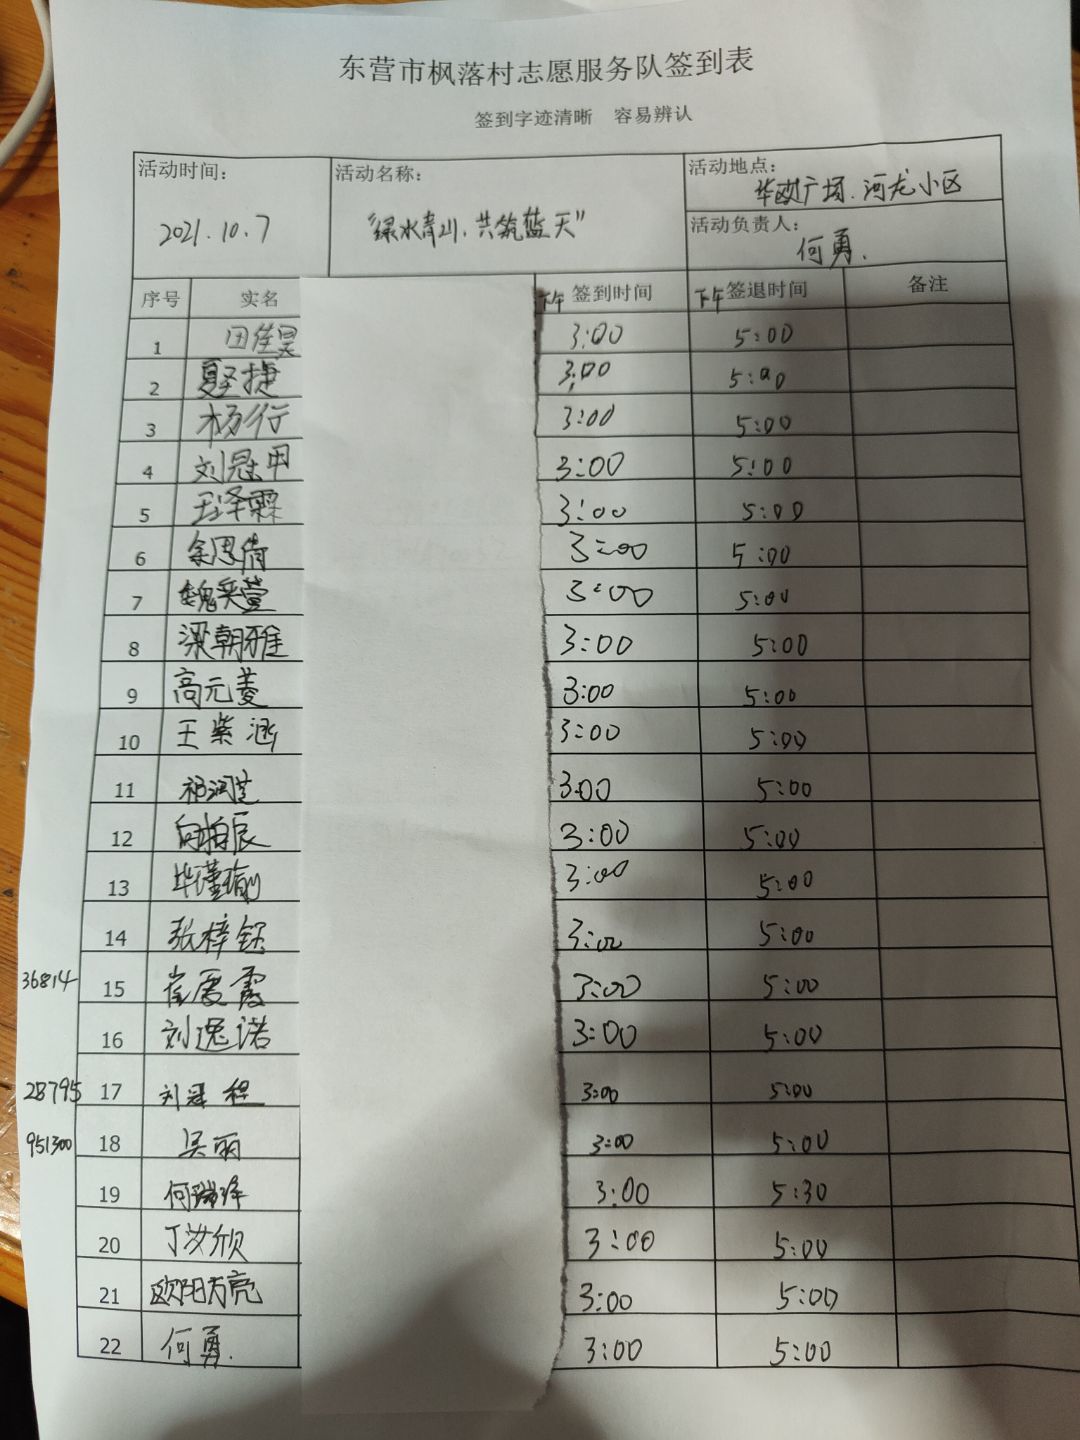 东营市枫落村志愿服务队签到表
签到字迹清晰 容易辨认
活动时间: 活动名称: 活动地点: 华欧广场.河龙小区
2021.10.7 "绿水青山、共筑蓝天" 活动负责人: 何勇.
序号 实名 下午 签到时间 下午 签退时间 备注
1 田佳昊 3:00 5:00
2 夏坚捷 3:00 5:00
3 杨行 3:00 5:00
4 刘冠甲 3:00 5:00
5 王泽霖 3:00 5:00
6 余思倩 3:00 5:00
7 魏采萱 3:00 5:00
8 梁朝雅 3:00 5:00
9 高元菱 3:00 5:00
10 王紫涵 3:00 5:00
11 祁润芝 3:00 5:00
12 向柏辰 3:00 5:00
13 毕瑾瑜 3:00 5:00
14 张梓钰 3:00 5:00
36814 15 崔爱霞 3:00 5:00
16 刘逸诺 3:00 5:00
28795 17 刘冠程 3:00 5:00
951300 18 吴丽 3:00 5:00
19 何瑞泽 3:00 5:30
20 丁汝欣 3:00 5:00
21 欧阳方亮 3:00 5:00
22 何勇. 3:00 5:00